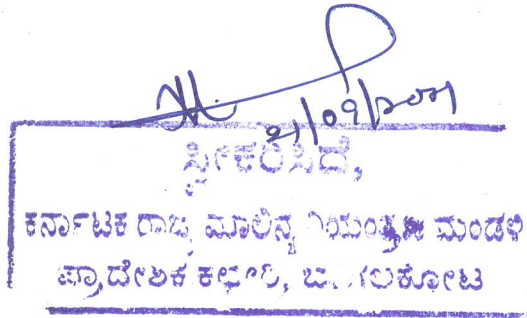 21/09/2021
ಸ್ವೀಕರಿಸಿದೆ,
ಕರ್ನಾಟಕ ರಾಜ್ಯ ಮಾಲಿನ್ಯ ನಿಯಂತ್ರಣ ಮಂಡಳಿ
ಪ್ರಾದೇಶಿಕ ಕಛೇರಿ, ಬಾಗಲಕೋಟ